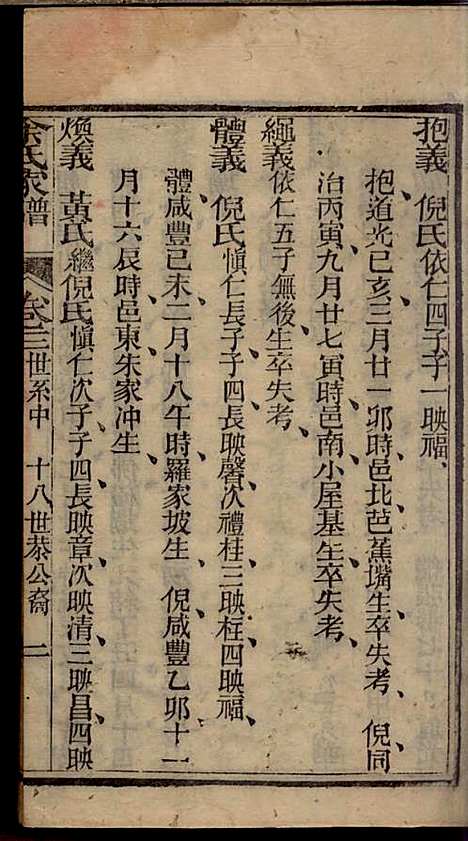 抱義　倪氏依仁四子子一映福、
抱道光己亥三月廿一卯時邑北芭蕉嘴生卒失考、倪同
治丙寅九月廿七寅時邑南小屋基生卒失考、
繩義依仁五子無後生卒失考、
體義　倪氏慎仁長子子四長映馨次禮桂三映柱四映福、
體咸豐己未二月十八午時羅家坡生、倪咸豐乙卯十一
月十六辰時邑東朱家冲生、
煥義　黃氏繼倪氏慎仁次子子四長映章次映清三映昌四映
余氏家譜　卷三世系中　十八世恭公裔　二